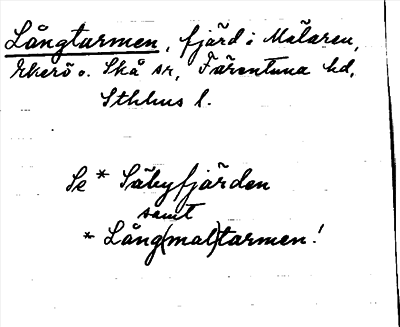 Långtarmen, fjärd i Mälaren,
Ekerö o. Skå sn, Färentuna hd,
Sthlms l.
Se * Säbyfjärden
samt
* Lång(mal)tarmen!